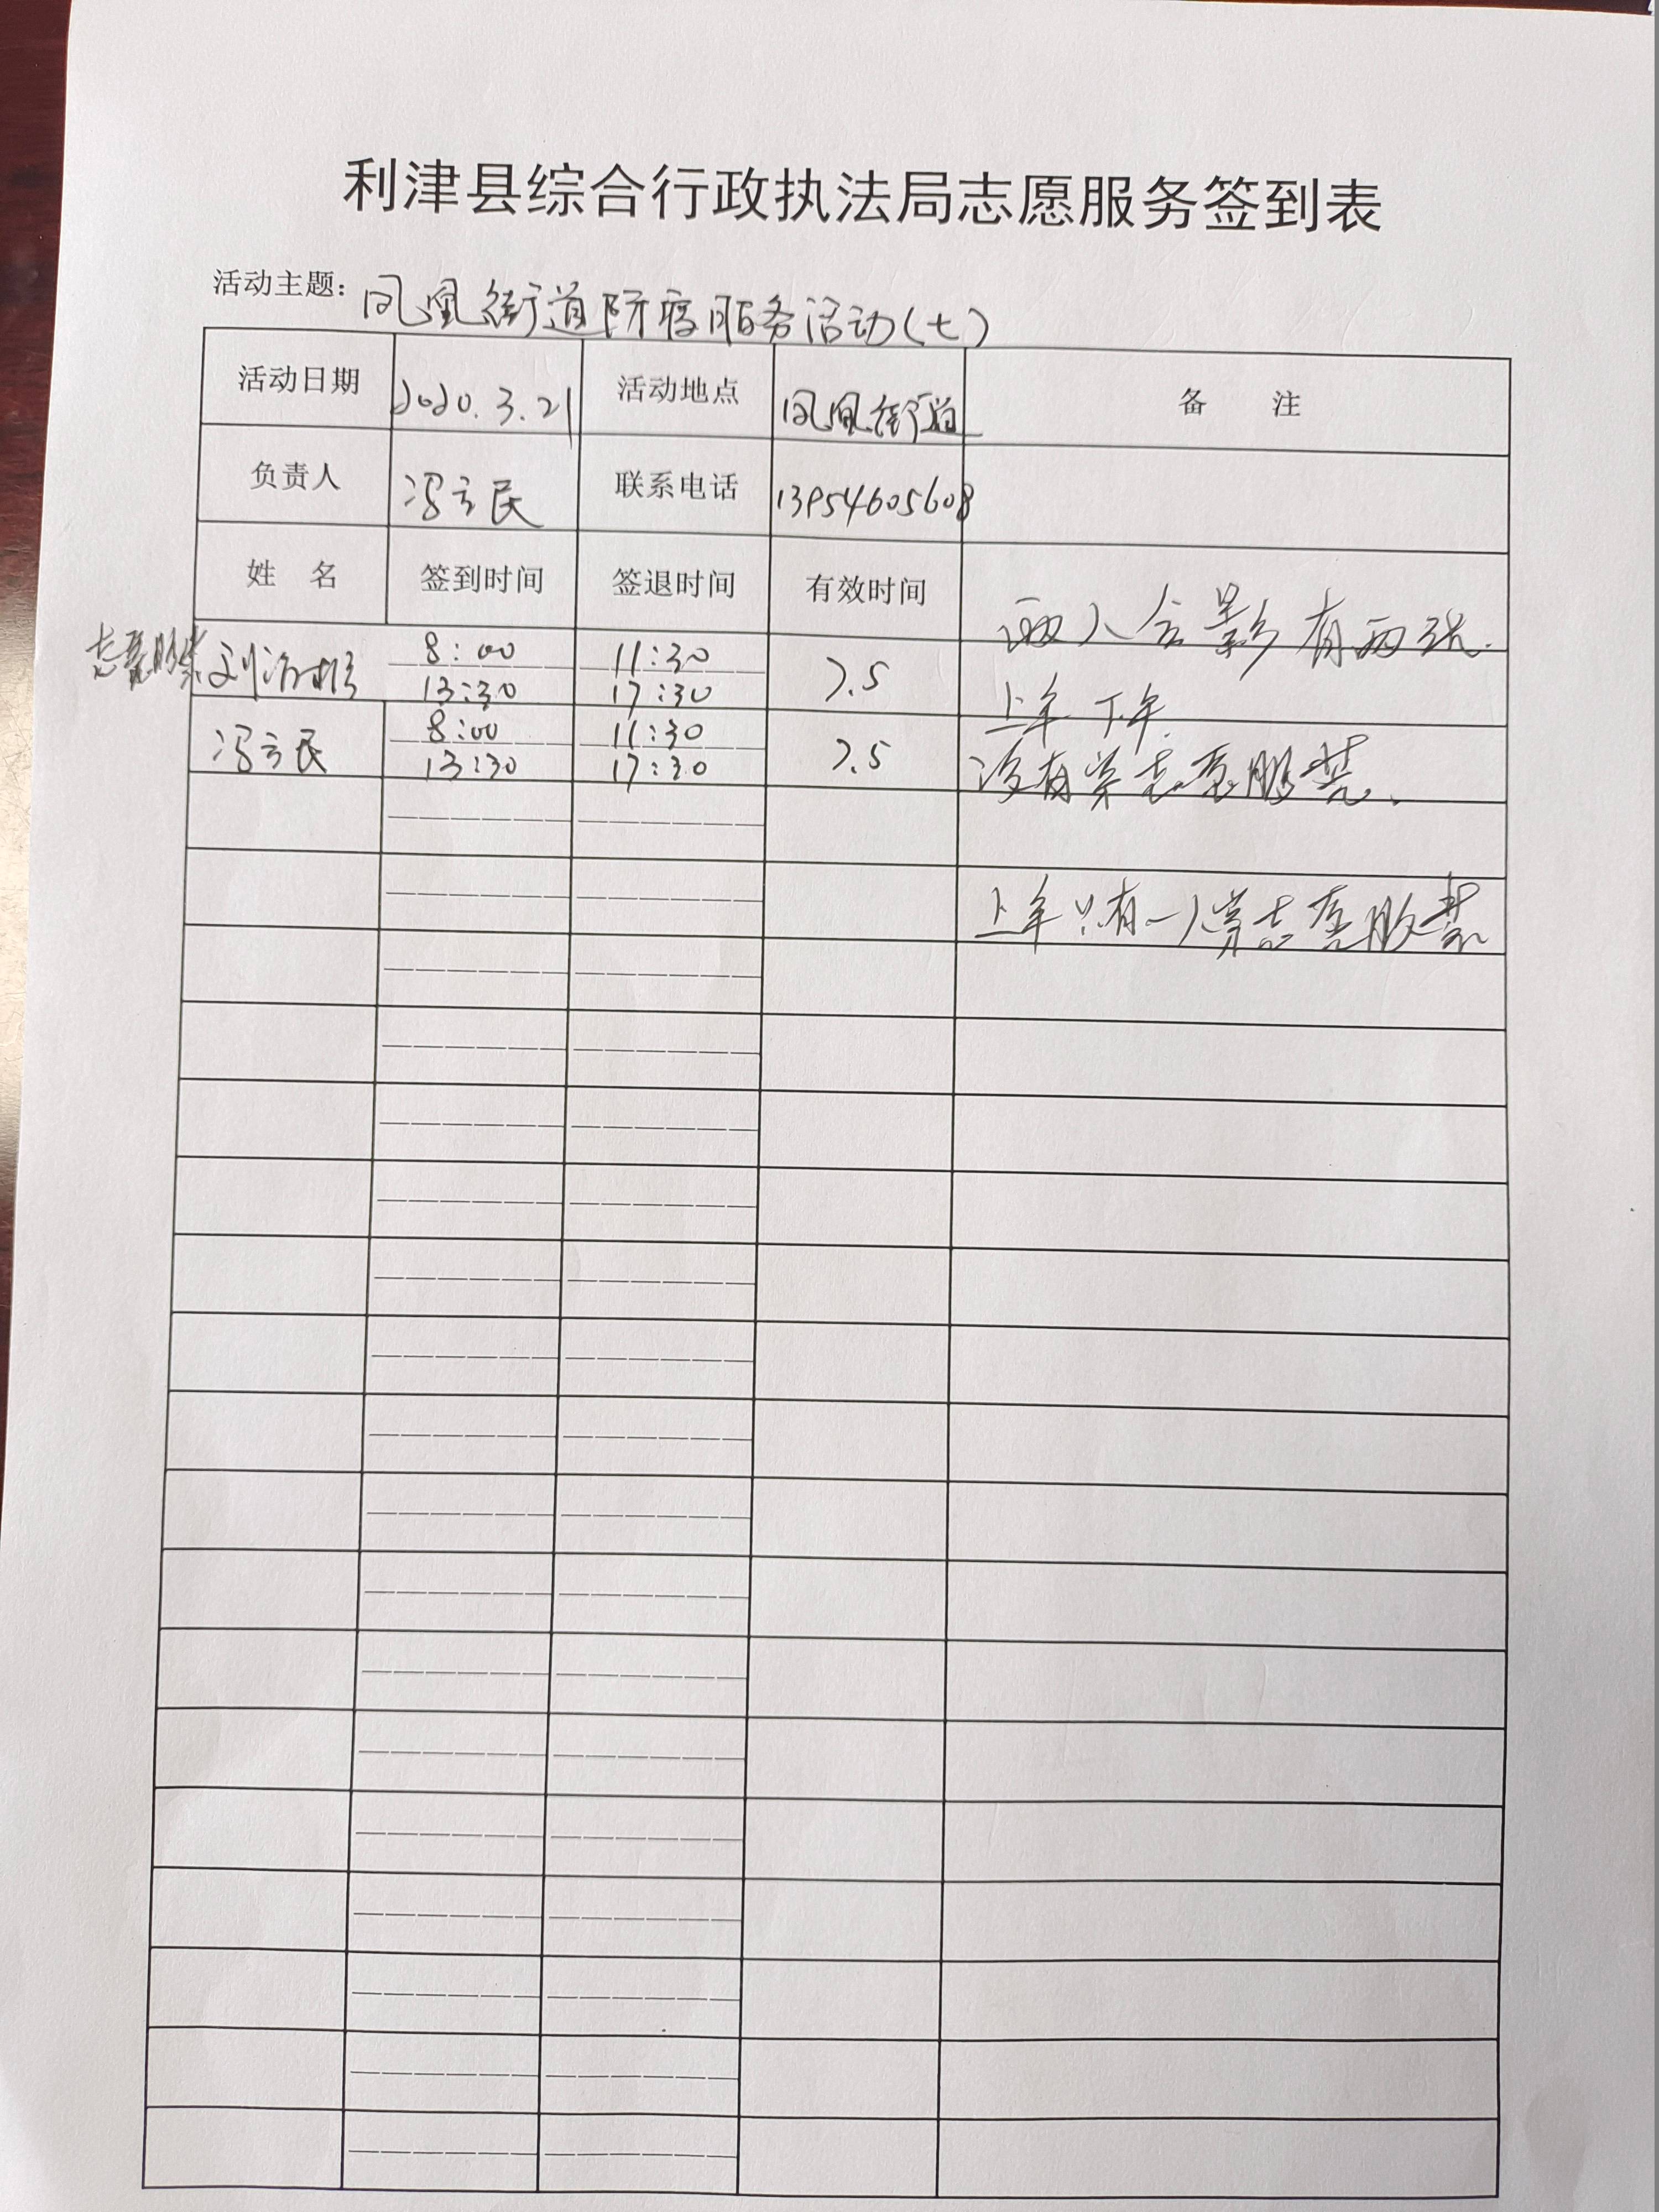 利津县综合行政执法局志愿服务签到表
活动主题：凤凰街道防疫服务活动(七)
活动日期 2020.3.21 活动地点 凤凰街道 备 注
负责人 冯立民 联系电话 13954605608
姓 名 签到时间 签退时间 有效时间
两人合影有两张.
8:00 11:30
刘治 7.5
13:30 17:30
上午 下午.
8:00 11:30
冯立民 7.5
13:30 17:30
没有穿志愿服装.
上午只有一人穿志愿服装